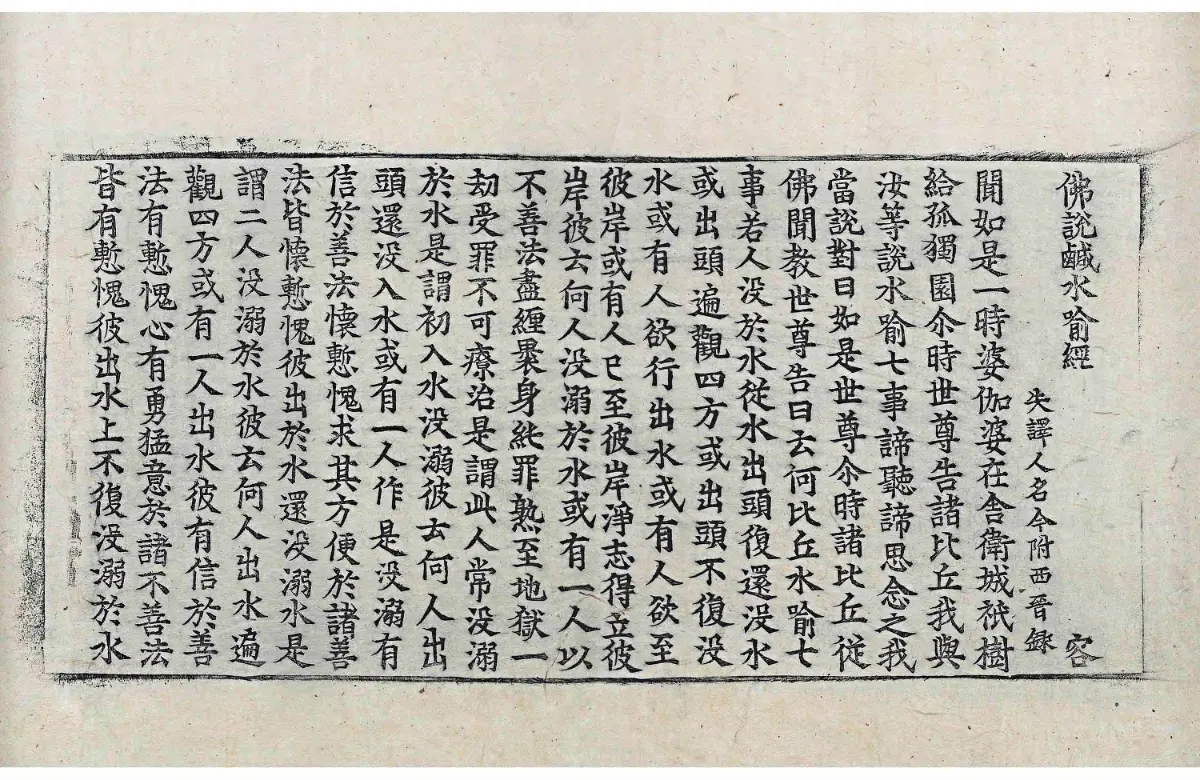 佛說鹹水喻經
容
失譯人名今附西晉錄
聞如是一時婆伽婆在舍衛城祇樹
給孤獨園尒時世尊告諸比丘我與
汝等說水喻七事諦聽諦思念之我
當說對曰如是世尊尒時諸比丘從
佛聞教世尊告曰云何比丘水喻七
事若人没於水從水出頭復還没水
或出頭遍觀四方或出頭不復没
水或有人欲行出水或有人欲至
彼岸或有人已至彼岸淨志得立彼
岸彼云何人没溺於水或有一人以
不善法盡纏褁身純罪熟至地獄一
劫受罪不可療治是謂此人常没溺
於水是謂初入水没溺彼云何人出
頭還没入水或有一人作是没溺有
信於善法懷慙愧求其方便於諸善
法皆懷慙愧彼出於水還没溺水是
謂二人没溺於水彼云何人出水遍
觀四方或有一人出水彼有信於善
法有慙愧心有勇猛意於諸不善法
皆有慙愧彼出水上不復没溺於水